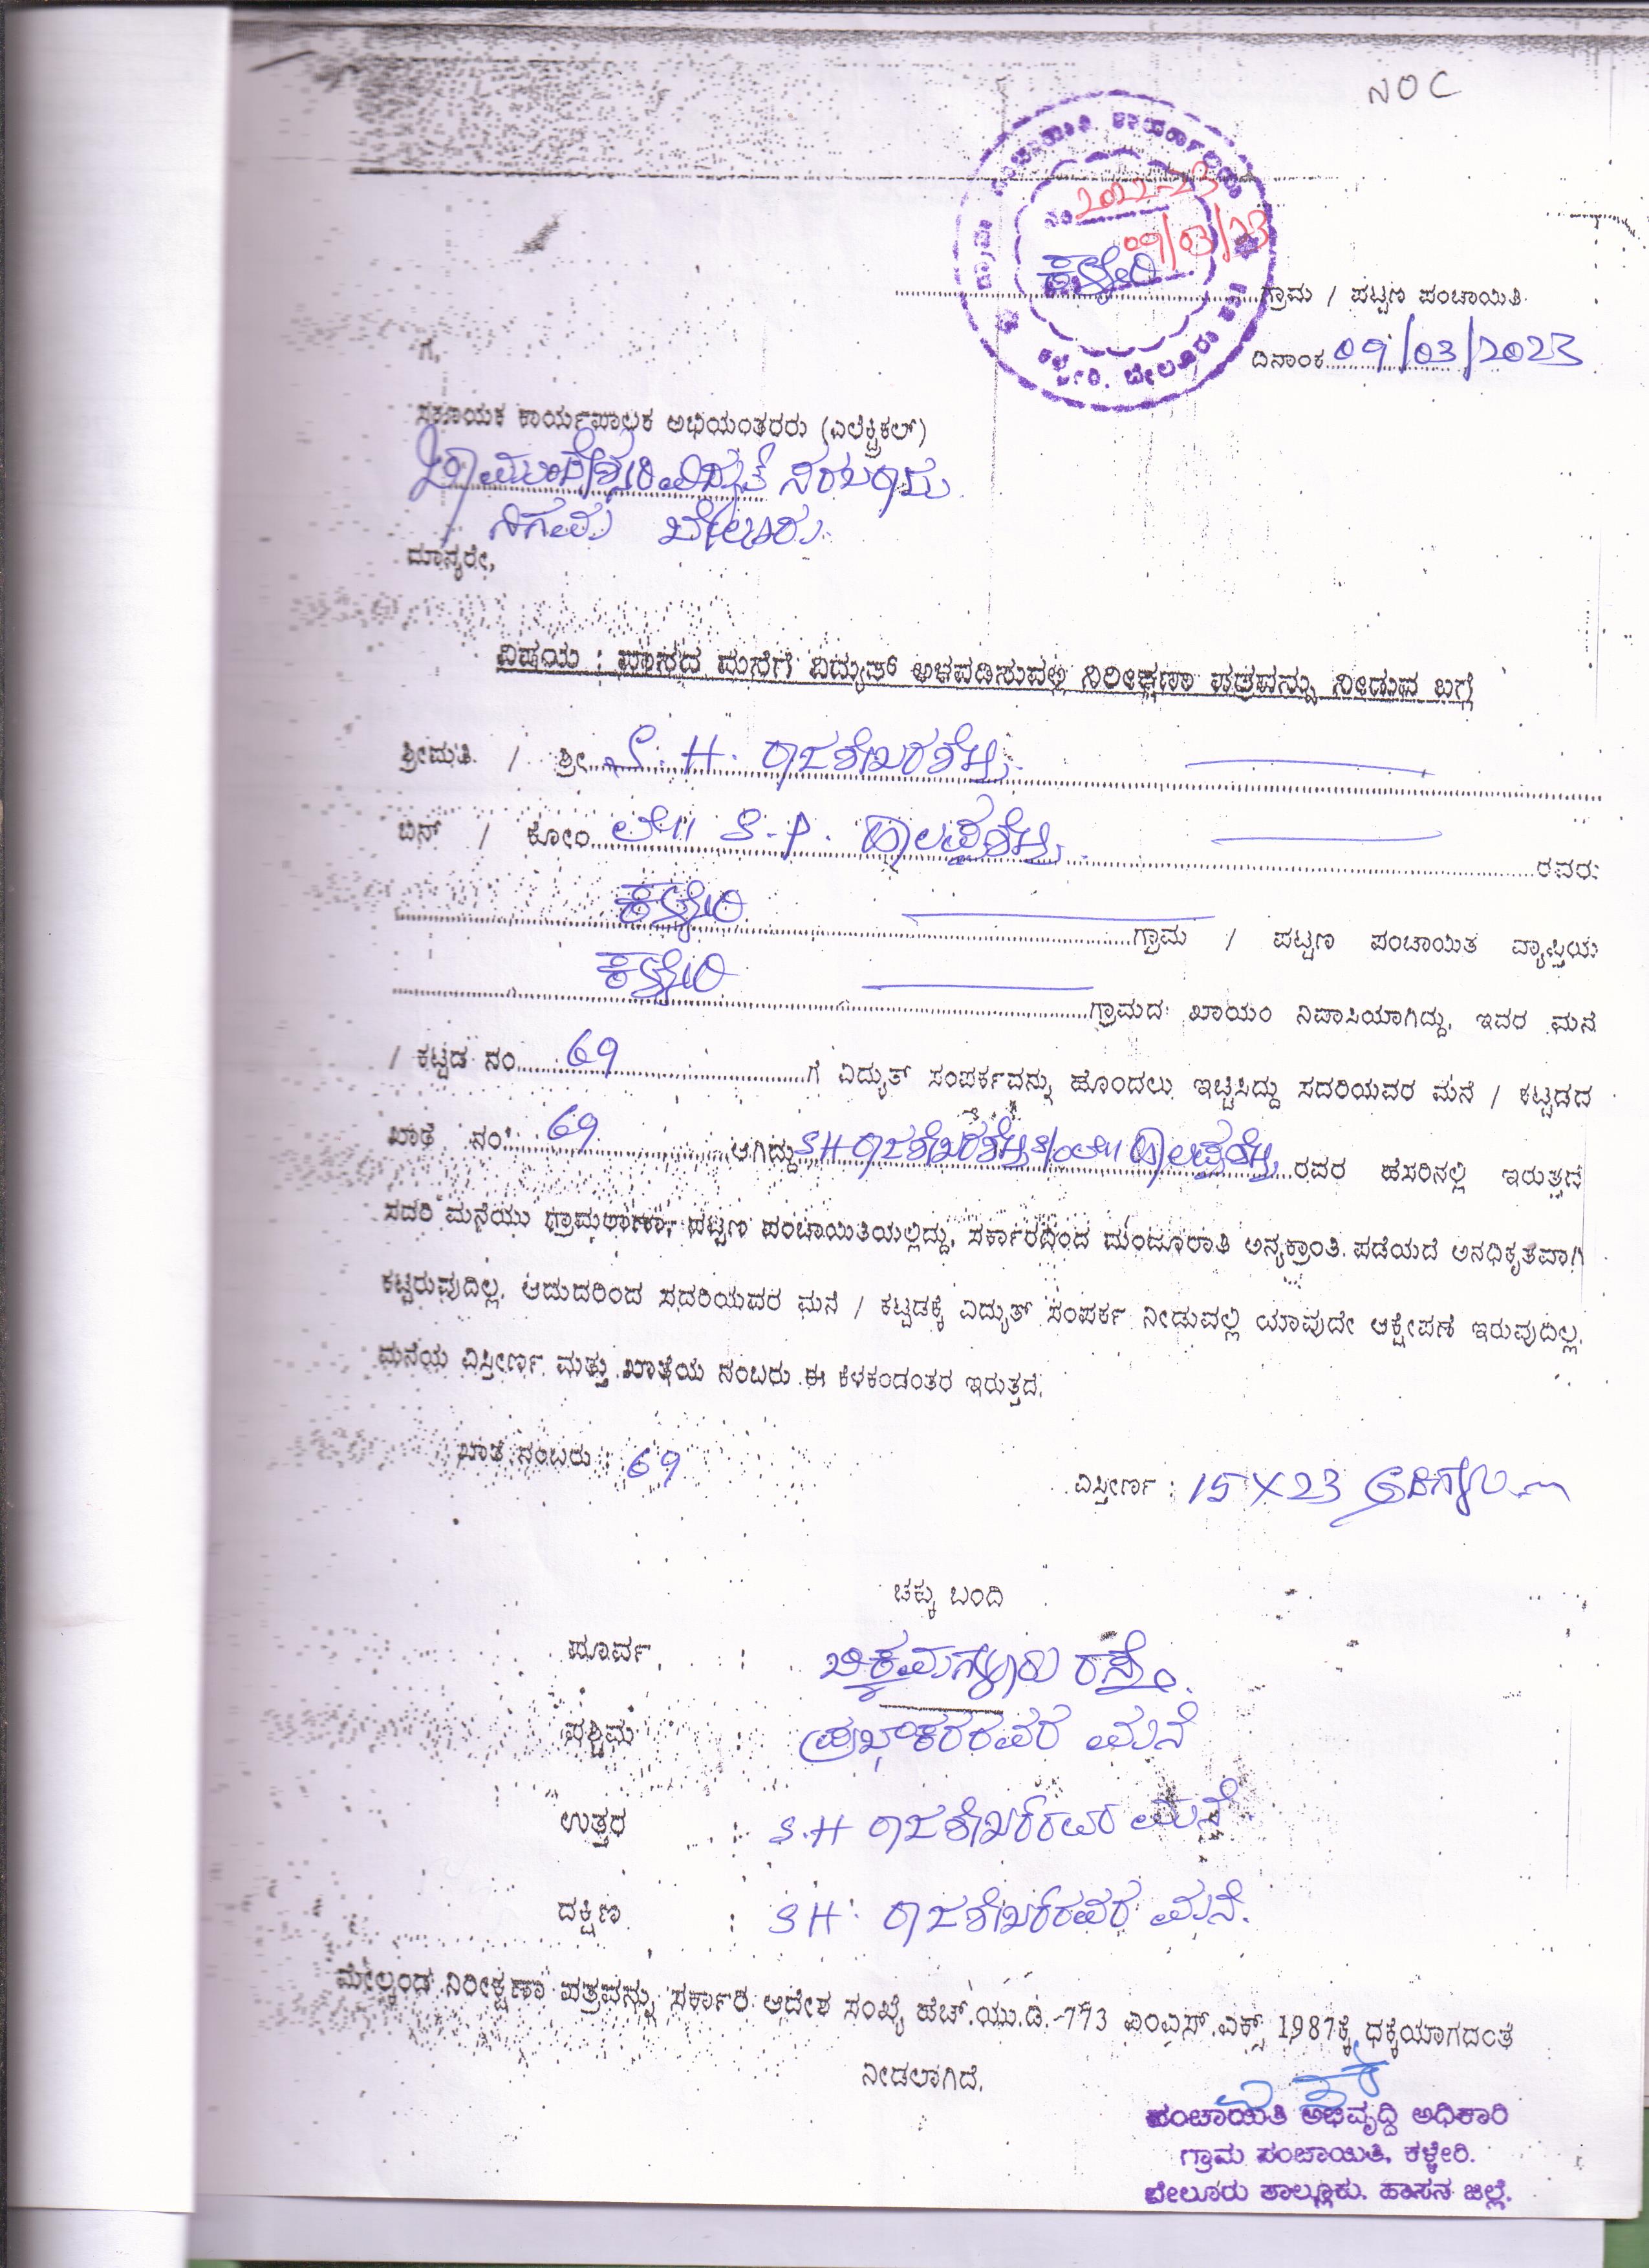 NOC
ಗ್ರಾಮ ಪಂಚಾಯಿತಿ ಕಾರ್ಯಾಲಯ
ನಂ 2022-23
09/03/23
ಕಳ್ಳೇರಿ, ಬೇಲೂರು
ಕಳ್ಳೇರಿ ಗ್ರಾಮ / ಪಟ್ಟಣ ಪಂಚಾಯಿತಿ
ದಿನಾಂಕ 09/03/2023
ಗೆ,
ಸಹಾಯಕ ಕಾರ್ಯಪಾಲಕ ಅಭಿಯಂತರರು (ಎಲೆಕ್ಟ್ರಿಕಲ್)
ಚಾಮುಂಡೇಶ್ವರಿ ವಿದ್ಯುತ್ ಸರಬರಾಜು
ನಿಗಮ ಬೇಲೂರು
ಮಾನ್ಯರೇ,
ವಿಷಯ : ವಾಸದ ಮನೆಗೆ ವಿದ್ಯುತ್ ಅಳವಡಿಸುವಲ್ಲಿ ನಿರೀಕ್ಷಣಾ ಪತ್ರವನ್ನು ನೀಡುವ ಬಗ್ಗೆ
ಶ್ರೀಮತಿ / ಶ್ರೀ S. H. ರಾಜಶೇಖರಶೆಟ್ಟಿ
ಬಿನ್ / ಕೋಂ ಲೇ|| S.P. ಹಾಲಪ್ಪಶೆಟ್ಟಿ ರವರು
ಕಳ್ಳೇರಿ ಗ್ರಾಮ / ಪಟ್ಟಣ ಪಂಚಾಯಿತ ವ್ಯಾಪ್ತಿಯ
ಕಳ್ಳೇರಿ ಗ್ರಾಮದ ಖಾಯಂ ನಿವಾಸಿಯಾಗಿದ್ದು, ಇವರ ಮನೆ
/ ಕಟ್ಟಡ ನಂ 69 ಗೆ ವಿದ್ಯುತ್ ಸಂಪರ್ಕವನ್ನು ಹೊಂದಲು ಇಚ್ಚಿಸಿದ್ದು ಸದರಿಯವರ ಮನೆ / ಕಟ್ಟಡದ
ಖಾತೆ ನಂ 69 ಆಗಿದ್ದು SH ರಾಜಶೇಖರಶೆಟ್ಟಿ S/o ಲೇ|| ಹಾಲಪ್ಪಶೆಟ್ಟಿ ರವರ ಹೆಸರಿನಲ್ಲಿ ಇರುತ್ತದೆ
ಸದರಿ ಮನೆಯು ಗ್ರಾಮಠಾಣಾ, ಪಟ್ಟಣ ಪಂಚಾಯಿತಿಯಲ್ಲಿದ್ದು, ಸರ್ಕಾರದಿಂದ ಮಂಜೂರಾತಿ ಅನ್ಯಕ್ರಾಂತಿ ಪಡೆಯದೆ ಅನಧಿಕೃತವಾಗಿ
ಕಟ್ಟಿರುವುದಿಲ್ಲ, ಆದುದರಿಂದ ಸದರಿಯವರ ಮನೆ / ಕಟ್ಟಡಕ್ಕೆ ವಿದ್ಯುತ್ ಸಂಪರ್ಕ ನೀಡುವಲ್ಲಿ ಯಾವುದೇ ಆಕ್ಷೇಪಣೆ ಇರುವುದಿಲ್ಲ.
ಮನೆಯ ವಿಸ್ತೀರ್ಣ ಮತ್ತು ಖಾತೆಯ ನಂಬರು ಈ ಕೆಳಕಂಡಂತರ ಇರುತ್ತದೆ.
ಖಾತೆ ನಂಬರು : 69
ವಿಸ್ತೀರ್ಣ : 15 X 23 ಅಡಿಗಳು
ಚಕ್ಕು ಬಂದಿ
ಪೂರ್ವ : ಚಿಕ್ಕಮಗಳೂರು ರಸ್ತೆ.
ಪಶ್ಚಿಮ : ಪ್ರಭಾಕರರವರ ಮನೆ
ಉತ್ತರ : S.H ರಾಜಶೇಖರ್‌ರವರ ಮನೆ
ದಕ್ಷಿಣ : SH ರಾಜಶೇಖರ್‌ರವರ ಮನೆ.
ಮೇಲ್ಕಂಡ ನಿರೀಕ್ಷಣಾ ಪತ್ರವನ್ನು ಸರ್ಕಾರಿ ಆದೇಶ ಸಂಖ್ಯೆ ಹೆಚ್.ಯು.ಡಿ.-773 ಎಂಎಸ್.ಎಕ್ಸ್ 1987ಕ್ಕೆ ಧಕ್ಕೆಯಾಗದಂತೆ
ನೀಡಲಾಗಿದೆ.
ಪಂಚಾಯಿತಿ ಅಭಿವೃದ್ಧಿ ಅಧಿಕಾರಿ
ಗ್ರಾಮ ಪಂಚಾಯಿತಿ, ಕಳ್ಳೇರಿ.
ಬೇಲೂರು ತಾಲ್ಲೂಕು. ಹಾಸನ ಜಿಲ್ಲೆ.